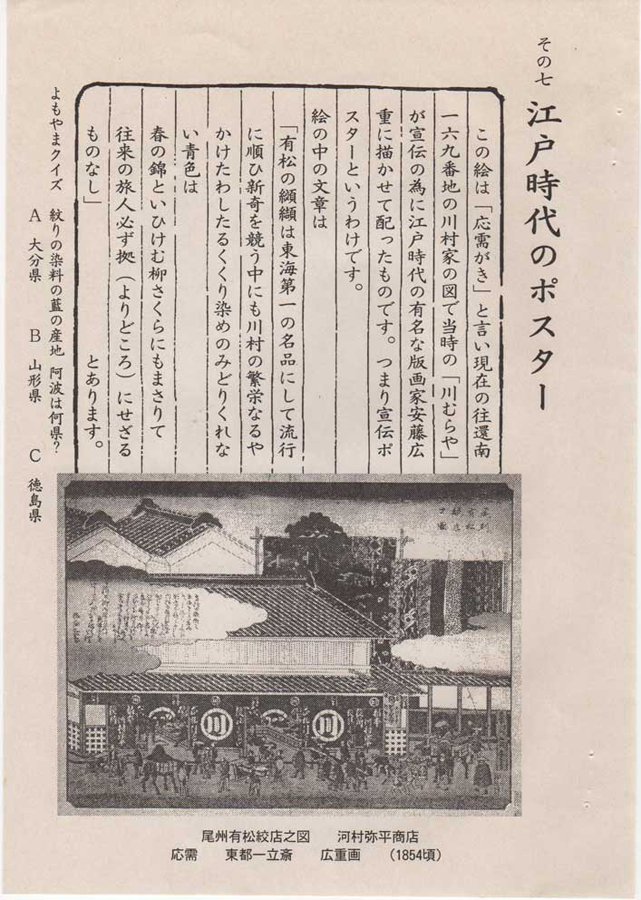 その七 江戸時代のポスター
この絵は「応需がき」と言い現在の往還南
一六九番地の川村家の図で当時の「川むらや」
が宣伝の為に江戸時代の有名な版画家安藤広
重に描かせて配ったものです。つまり宣伝ポ
スターというわけです。
絵の中の文章は
「有松の纐纈は東海第一の名品にして流行
に順ひ新奇を競う中にも川村の繁栄なるや
かけたわしたるくくり染めのみどりくれな
い青色は
春の錦といひけむ柳さくらにもまさりて
往来の旅人必ず拠(よりどころ)にせざる
ものなし」 とあります。
よもやまクイズ 絞りの染料の藍の産地 阿波は何県?
A 大分県 B 山形県 C 徳島県
川
川
尾州有松絞店之図 河村弥平商店
応需 東都一立斎 広重画 (1854頃)